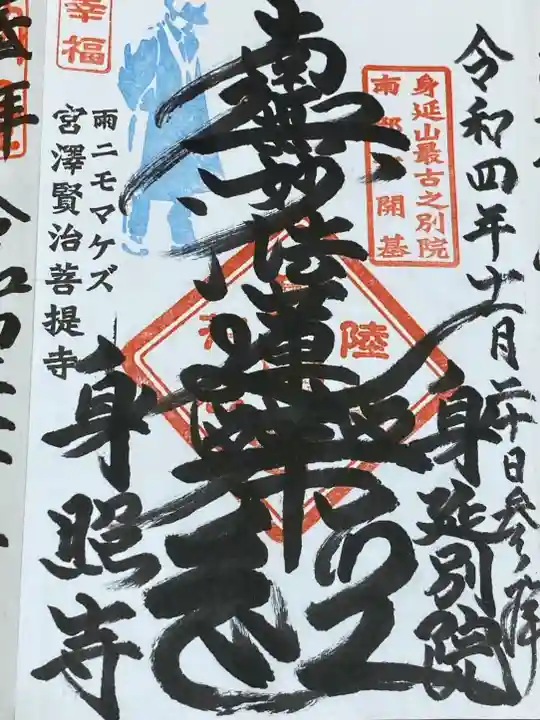 令和四年十一月二十日参拝
身延別院
身延山最古之別院
南
開基
陸
南無妙法蓮華経
幸福
雨ニモマケズ
宮澤賢治菩提寺
身照寺
拝